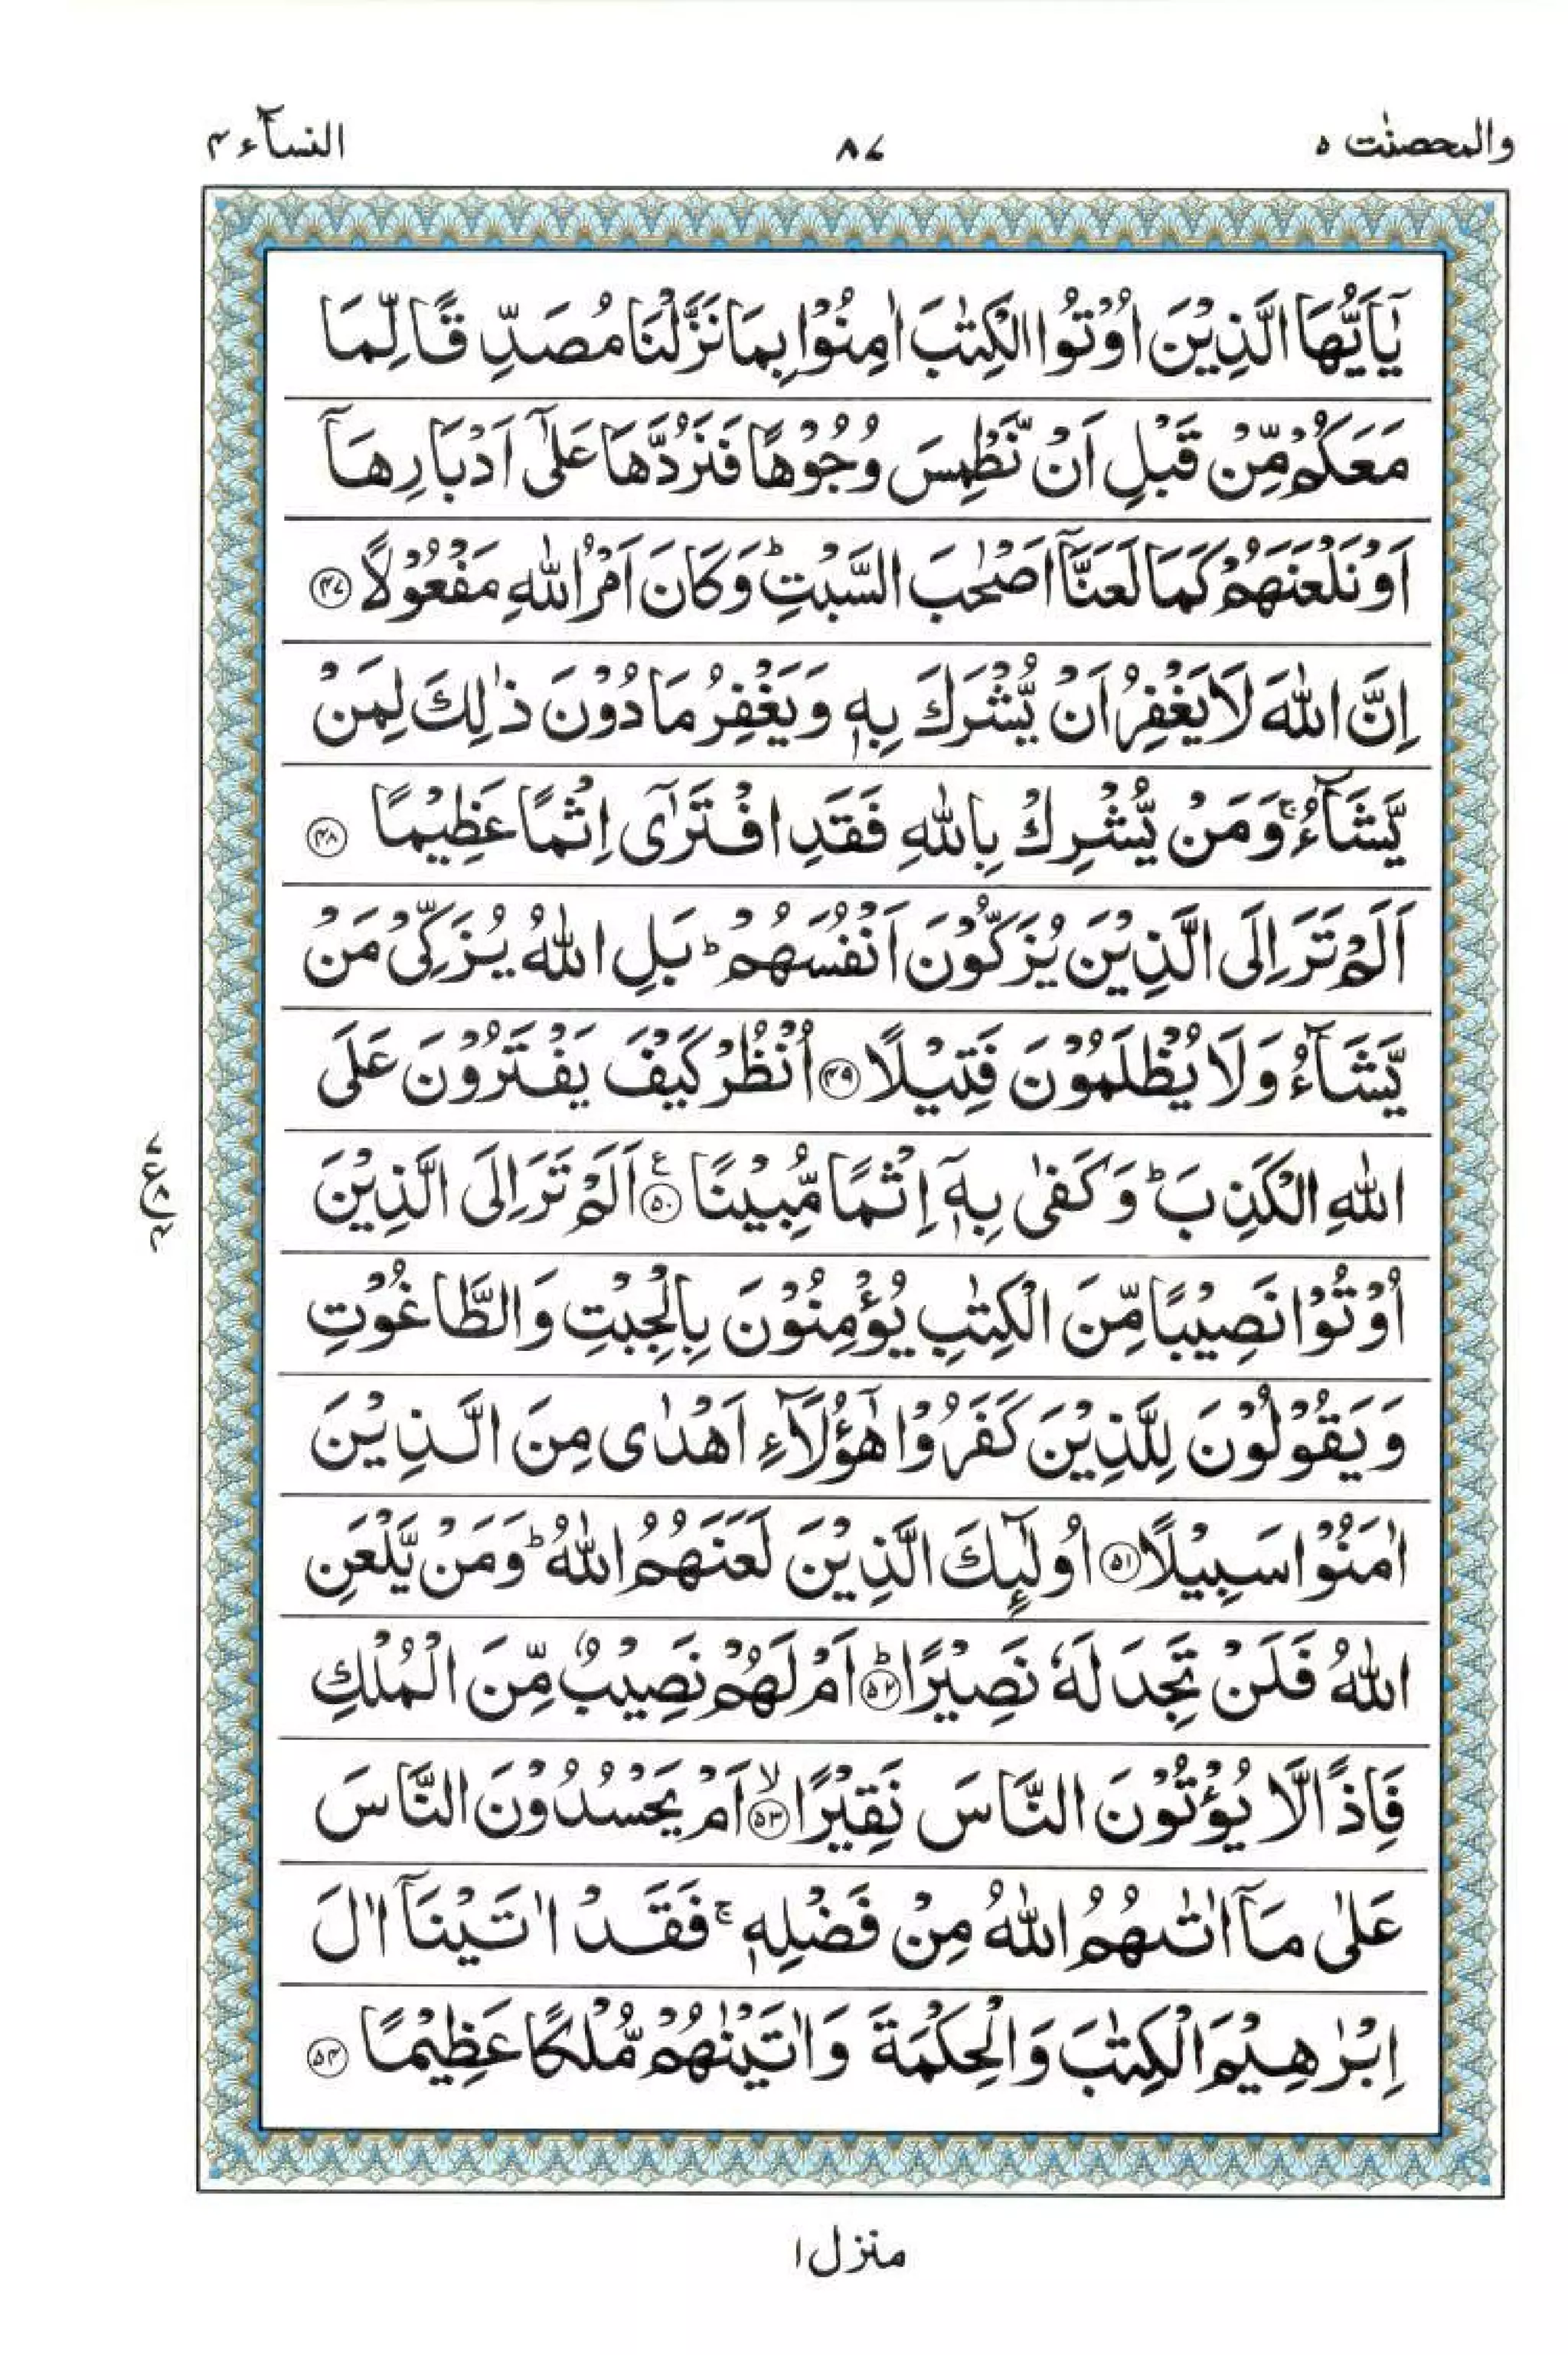 والمحصنٰت ۵
۸۷
النسآء ۴
يٰۤاَيُّهَا الَّذِيْنَ اُوْتُوا الْكِتٰبَ اٰمِنُوْا بِمَا نَزَّلْنَا مُصَدِّقًا لِّمَا
مَعَكُمْ مِّنْ قَبْلِ اَنْ نَّطْمِسَ وُجُوْهًا فَنَرُدَّهَا عَلٰۤى اَدْبَارِهَاۤ
اَوْ نَلْعَنَهُمْ كَمَا لَعَنَّاۤ اَصْحٰبَ السَّبْتِ ؕ وَكَانَ اَمْرُ اللّٰهِ مَفْعُوْلًا ۴۷
اِنَّ اللّٰهَ لَا يَغْفِرُ اَنْ يُّشْرَكَ بِهٖ وَيَغْفِرُ مَا دُوْنَ ذٰلِكَ لِمَنْ
يَّشَآءُ ۚ وَمَنْ يُّشْرِكْ بِاللّٰهِ فَقَدِ افْتَرٰۤى اِثْمًا عَظِيْمًا ۴۸
اَلَمْ تَرَ اِلَى الَّذِيْنَ يُزَكُّوْنَ اَنْفُسَهُمْ ؕ بَلِ اللّٰهُ يُزَكِّىْ مَنْ
يَّشَآءُ وَلَا يُظْلَمُوْنَ فَتِيْلًا ۴۹ اُنْظُرْ كَيْفَ يَفْتَرُوْنَ عَلَى
اللّٰهِ الْكَذِبَ ؕ وَكَفٰى بِهٖۤ اِثْمًا مُّبِيْنًا ۵۰ ع اَلَمْ تَرَ اِلَى الَّذِيْنَ
اُوْتُوْا نَصِيْبًا مِّنَ الْكِتٰبِ يُؤْمِنُوْنَ بِالْجِبْتِ وَالطَّاغُوْتِ
وَيَقُوْلُوْنَ لِلَّذِيْنَ كَفَرُوْا هٰۤؤُلَآءِ اَهْدٰى مِنَ الَّذِيْنَ
اٰمَنُوْا سَبِيْلًا ۵۱ اُولٰٓئِكَ الَّذِيْنَ لَعَنَهُمُ اللّٰهُ ؕ وَمَنْ يَّلْعَنِ
اللّٰهُ فَلَنْ تَجِدَ لَهٗ نَصِيْرًا ؕ ۵۲ اَمْ لَهُمْ نَصِيْبٌ مِّنَ الْمُلْكِ
فَاِذًا لَّا يُؤْتُوْنَ النَّاسَ نَقِيْرًا ۙ ۵۳ اَمْ يَحْسُدُوْنَ النَّاسَ
عَلٰى مَاۤ اٰتٰىهُمُ اللّٰهُ مِنْ فَضْلِهٖ ۚ فَقَدْ اٰتَيْنَاۤ اٰلَ
اِبْرٰهِيْمَ الْكِتٰبَ وَالْحِكْمَةَ وَاٰتَيْنٰهُمْ مُّلْكًا عَظِيْمًا ۵۴
منزل ۱